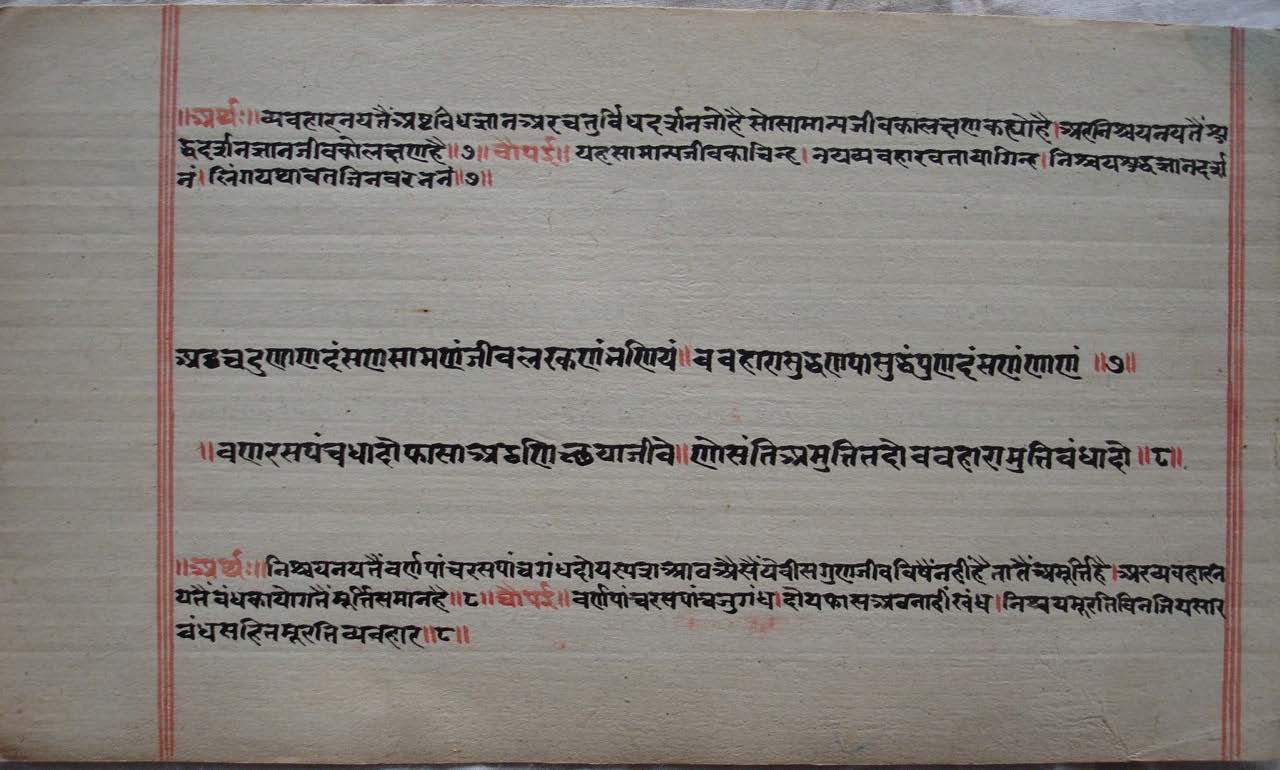 ॥अर्थः॥व्यवहारनयतैंअष्टविधज्ञानअरचतुर्विधदर्शनजोहैसोसामान्यजीवकालक्षणकह्योहै।अरनिश्चयनयतैंशु
द्धदर्शनज्ञानजीवकोलक्षणहै॥७॥चौपई॥यहसामान्यजीवकाचिन्ह।नयव्यवहारवतायागिन्ह।निश्चयशुद्धज्ञानदर्श
नं।लिंगयथावतजिनवरभनं॥७॥
अठचदुणाणदंसणसामणंजीवलरकणंभणियं॥ववहारासुद्धणयासुद्धंपुणदंसणंणाणं॥७॥
॥वणरसपंचधादोफासाअठणिच्छयाजीवे॥णोसंतिअमुत्तितदोववहारामुत्तिवंधादो॥८॥
॥अर्थः॥निश्चयनयतैंवर्णपांचरसपांचगंधदोयस्पराआवअैसैंयेवीसगुणजीवविषैंनहींहैतातैंअमूर्त्तिहै।अरव्यवहारन
यतैंवंधकायोगतैंमूर्त्तिसमानहै॥८॥चौपई॥वर्णपांचरसपांचजुगंध।दोयफासअवनाहींखंध।निश्चयमूरतिविनजियसार
वंधसहितमूरतिव्यवहार॥८॥